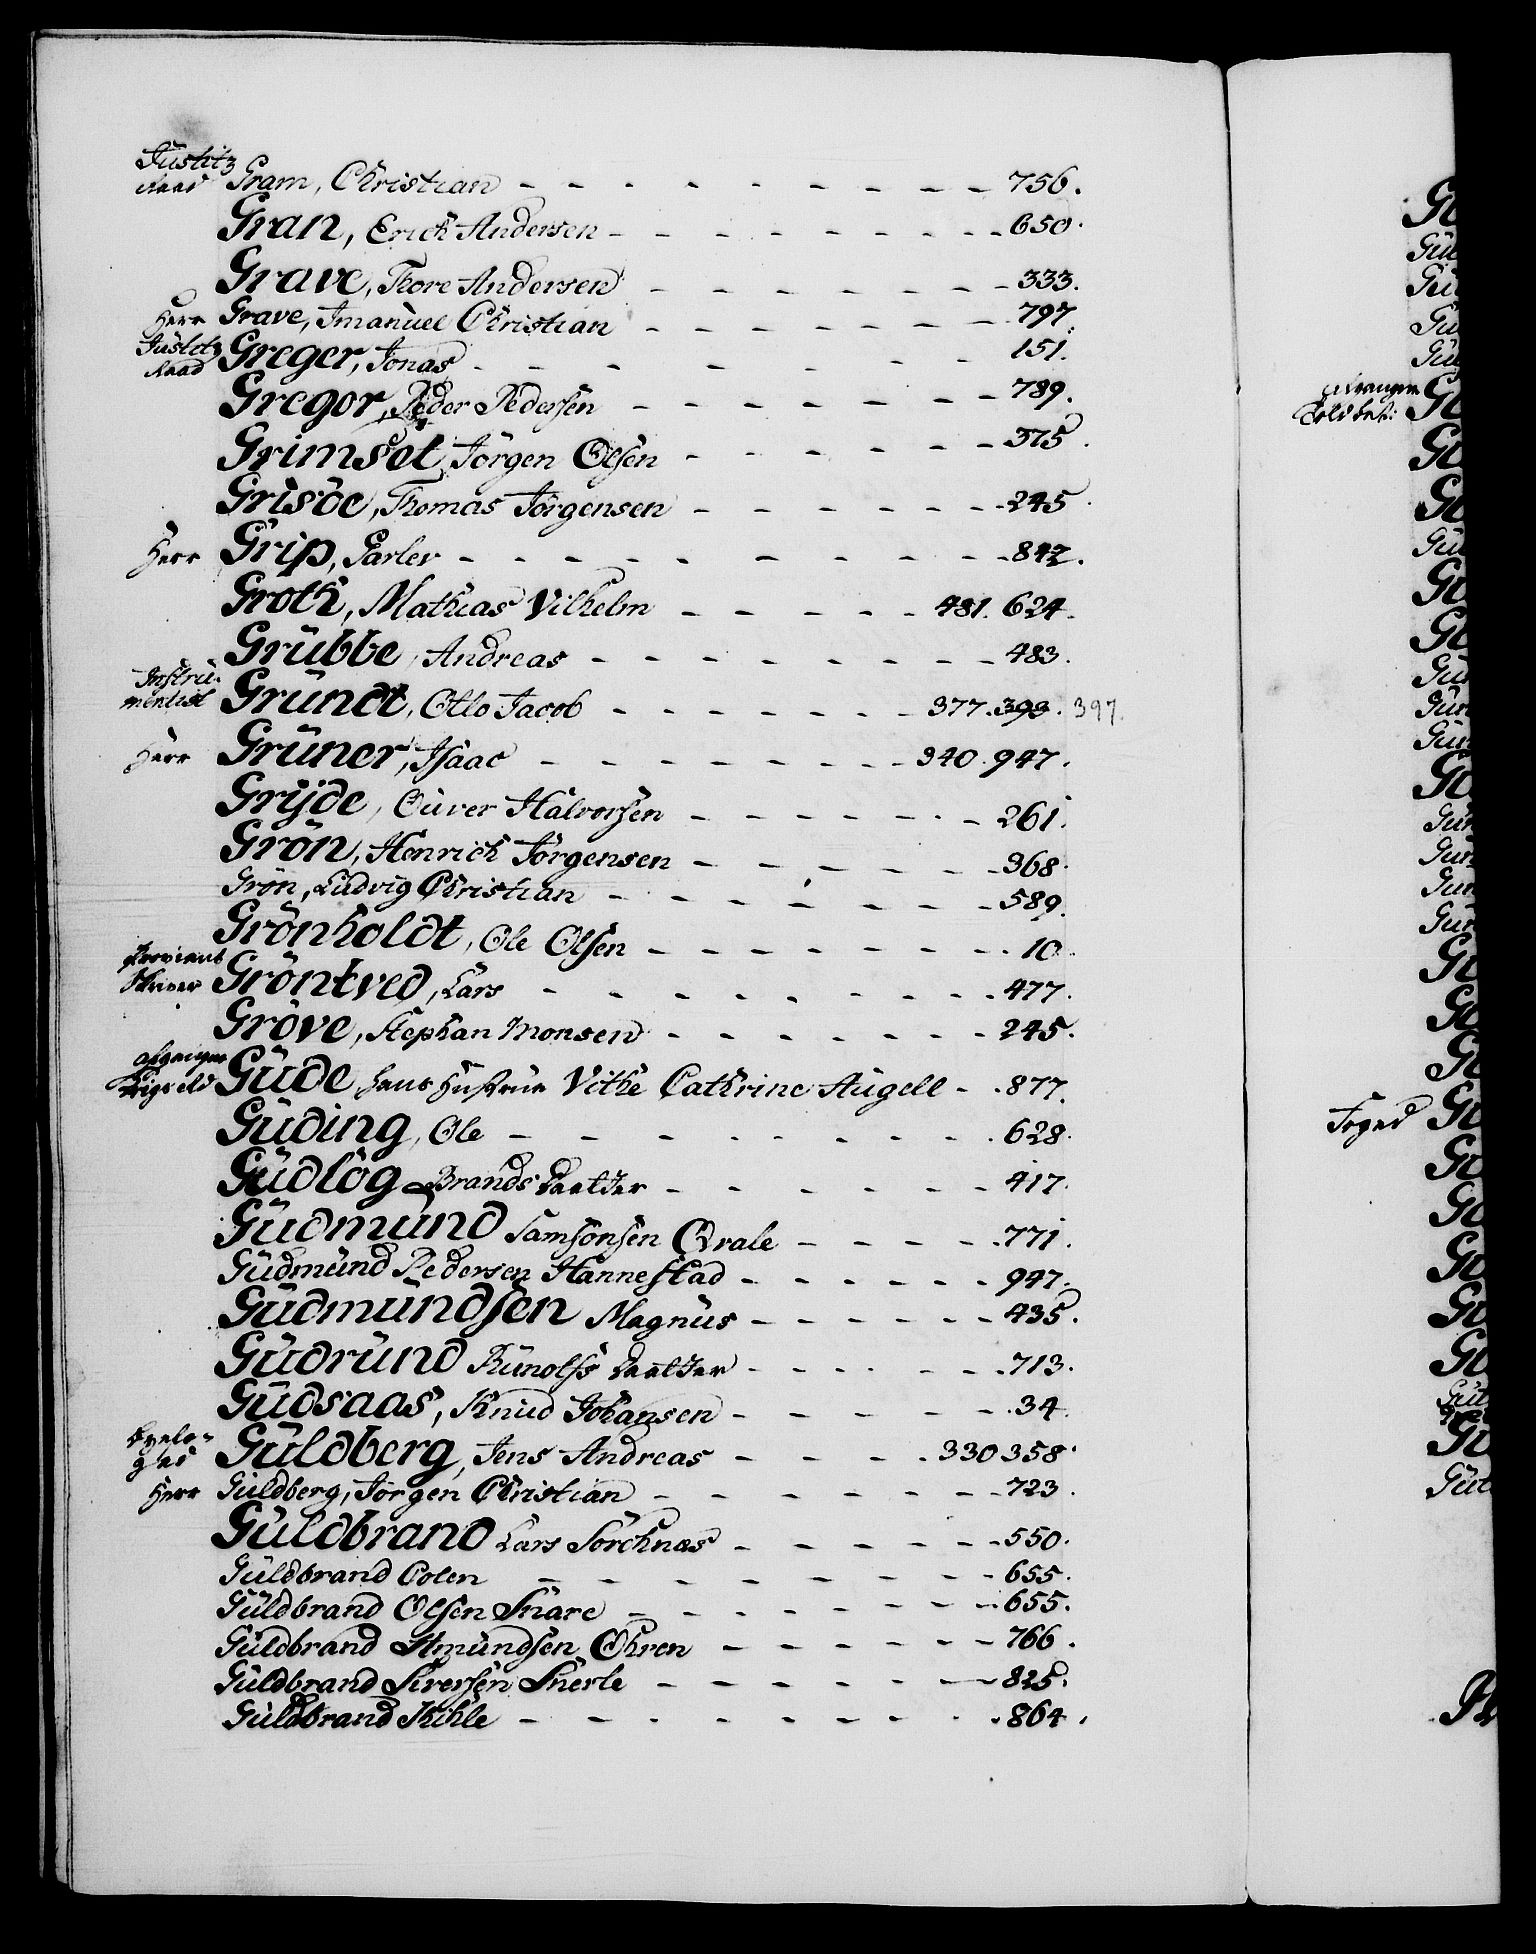 Justitz
Raad Gram, Christian - - - - - - - - - - 756.
Gran, Erich Andersen - - - - - - - - - 650.
Grave, Thore Andersen - - - - - - - - 333.
Herr Grave, Imanuel Christian - - - - - - - - 797.
Justitz
Raad Greger, Jonas - - - - - - - 151.
Gregor, Peder Pedersen - - - - - - - 789.
Grimset, Jörgen Olsen - - - - - - - 375.
Grisöe, Thomas Jörgensen - - - - - - - 245.
Herr Grip, Jarler - - - - - - - - - - 842.
Groth, Mathias Vilhelm - - - - - 481. 624.
Grübbe, Andreas - - - - - - - - - 483.
Instru-
mentist Gründt, Otto Jacob - - - - - - - 377. 393. 397.
Herr Grüner, Isaac - - - - - - - - - 340. 947.
Grÿde, Ouver Halvorsen - - - - - - - 261.
Grön, Henrich Jörgensen - - - - - - - 368.
Grön, Ludvig Christian - - - - - - - - 589.
Grönholdt, Ole Olsen - - - - - - - - - 10.
Proviant
Skriver Gröntved, Lars - - - - - - - - - 477.
Gröve, Stephan Monsen - - - - - - - - 245.
afgangen
Güde hans Hustrue Vithe Cathrine Augell - . 877.
Güding, Ole - - - - - - - - - 628.
Güdlög Brands Daatter - - - - - - - 417.
Güdmünd Samsonsen Qvale - - - - - 771.
Güdmünd Pedersen Hannestad - - - - - - - 947.
Güdmündsen Magnüs - - - - - - - 435.
Güdründ Runolfs Daatter - - - - - - 713.
Güdsaas, Knüd Johansen - - - - - - 34.
Güldberg, Jens Andreas - - - - 330 358.
Herr Güldberg, Jörgen Christian - - - - - - - 723.
Güldbrand Lars Sörchnæs - - - - - - 550.
Güldbrand Colen - - - - - - - - 655.
Güldbrand Olsen Snare - - - - - - - - 655.
Güldbrand Amündsen Öhren - - - - - - - 766.
Güldbrand Siversen Snerle - - - - - - - 825.
Güldbrand Kihle - - - - - - - - - 864.
Foged